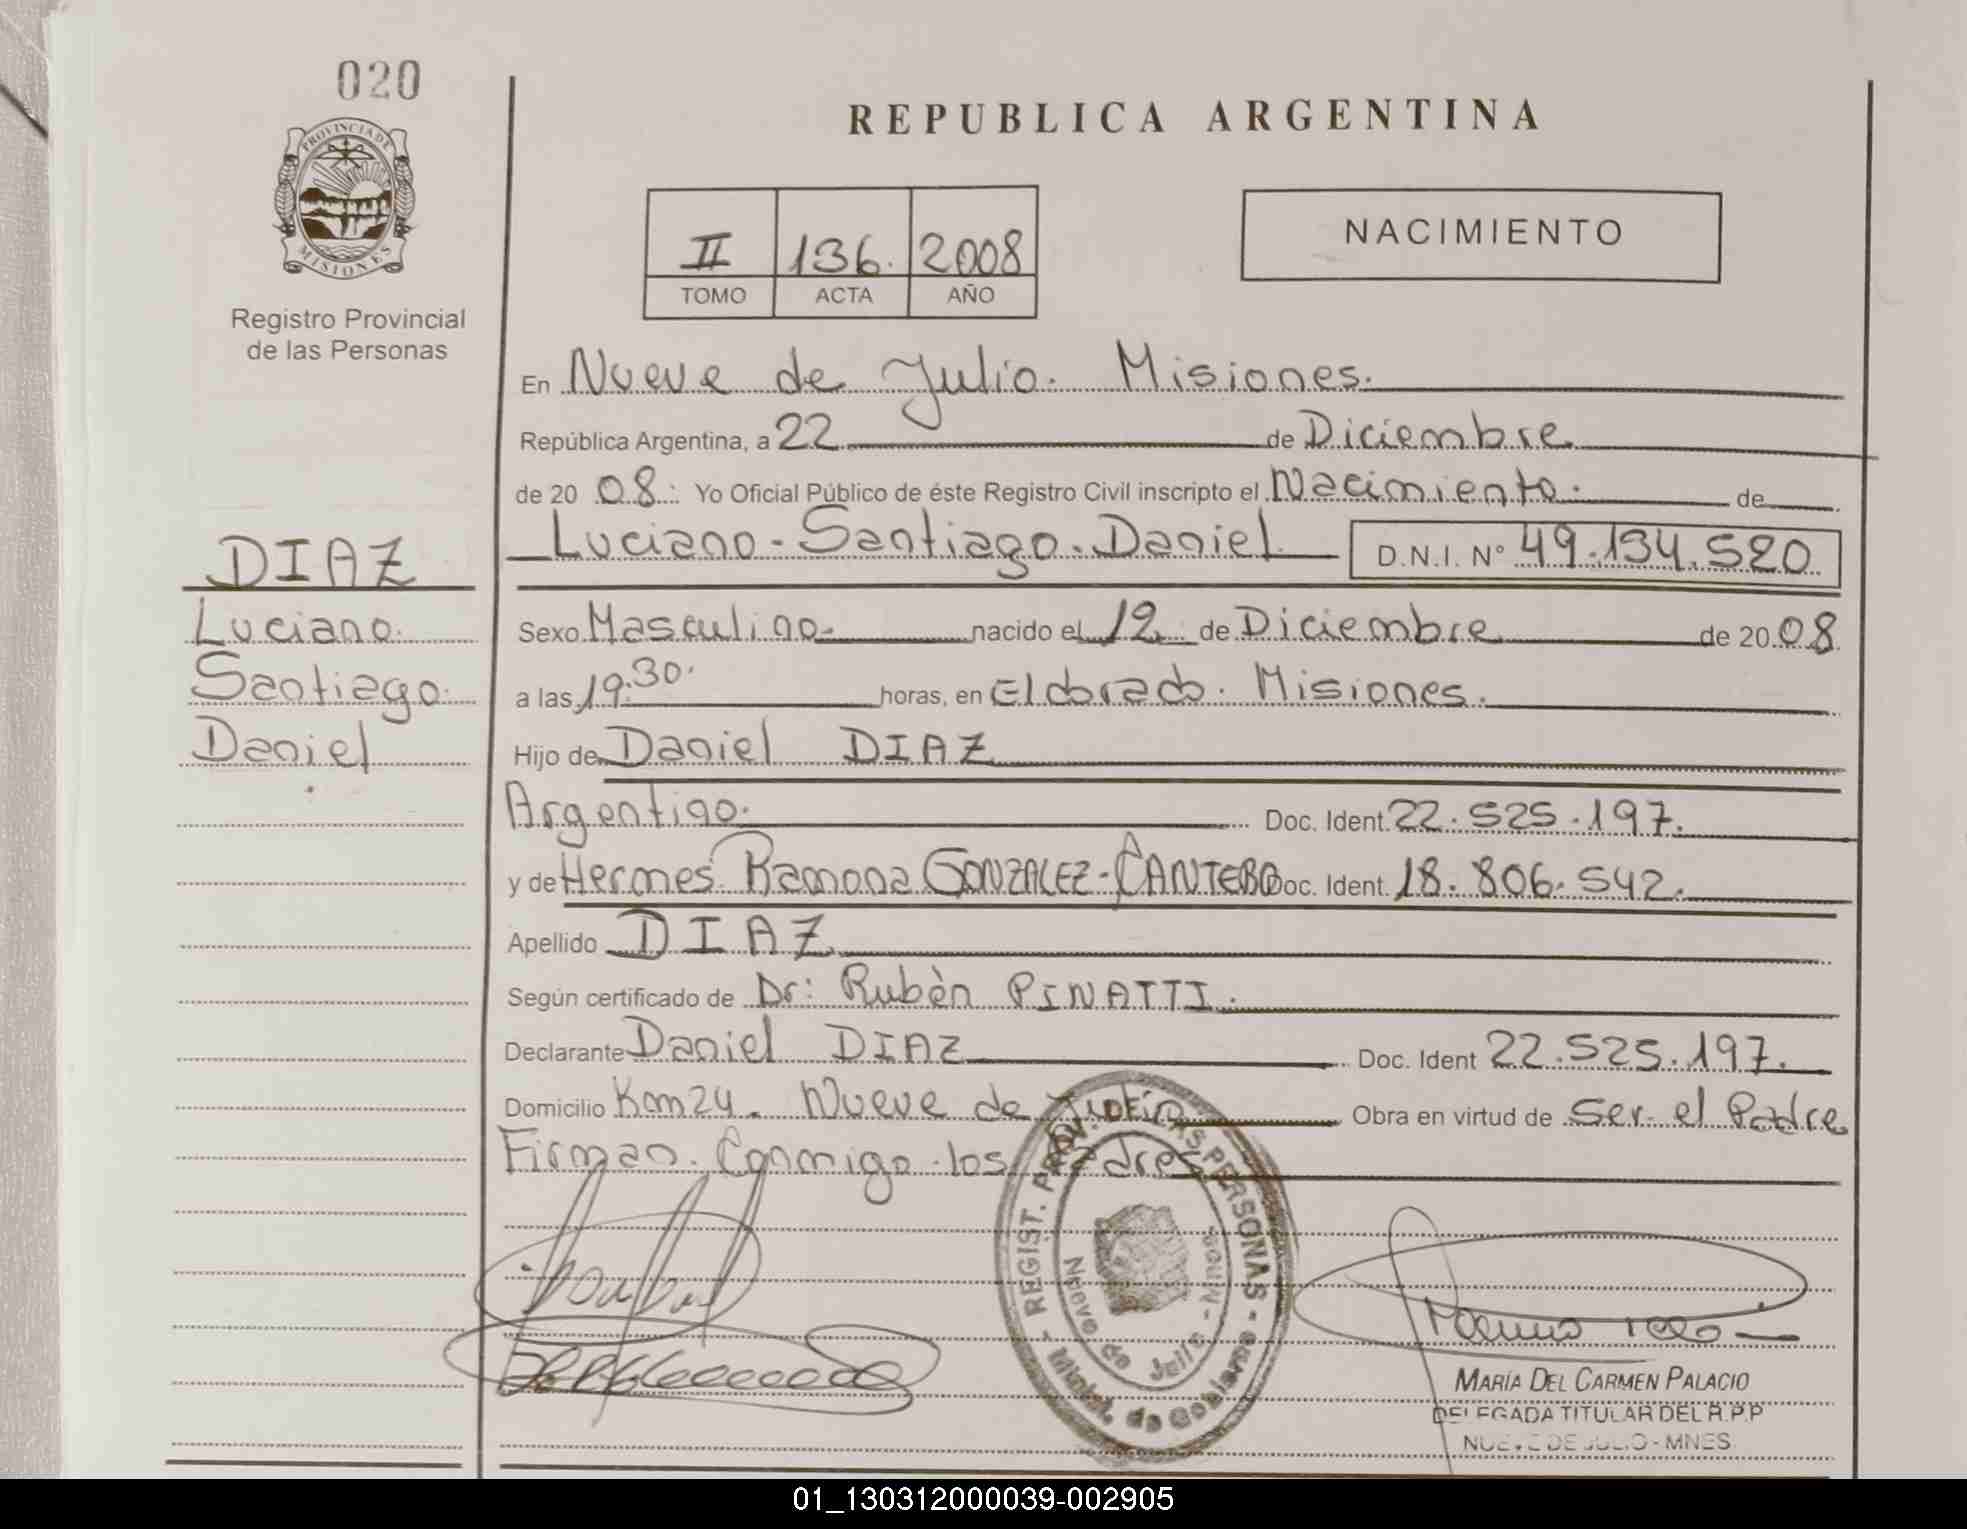 020
PROVINCIA DE
MISIONES
Registro Provincial
de las Personas
DIAZ
Luciano.
Santiago.
Daniel
REPUBLICA ARGENTINA
II 136. 2008
TOMO ACTA AÑO
NACIMIENTO
En Nueve de Julio. Misiones.
República Argentina, a 22 de Diciembre
de 20 08. Yo Oficial Público de éste Registro Civil inscripto el Nacimiento. de
Luciano - Santiago. Daniel D.N.I. Nº 49.134.520
Sexo Masculino. nacido el 12 de Diciembre de 20 08
a las 19:30. horas, en Eldorado. Misiones.
Hijo de Daniel DIAZ
Argentino. Doc. Ident. 22.525.197.
y de Hermes Ramona GONZALEZ - CANTERO Doc. Ident. 18.806.542.
Apellido DIAZ
Según certificado de Dr: Rubèn PINATTI.
Declarante Daniel DIAZ Doc. Ident 22.525.197.
Domicilio Km 24. Nueve de Julio Obra en virtud de Ser el Padre
Firman. Conmigo los Padres
REGIST. PROV. DE LAS PERSONAS - Minist. de Gobierno -
Nueve de Julio - Mnes.
MARÍA DEL CARMEN PALACIO
DELEGADA TITULAR DEL R.P.P
NUEVE DE JULIO - MNES
01_130312000039-002905